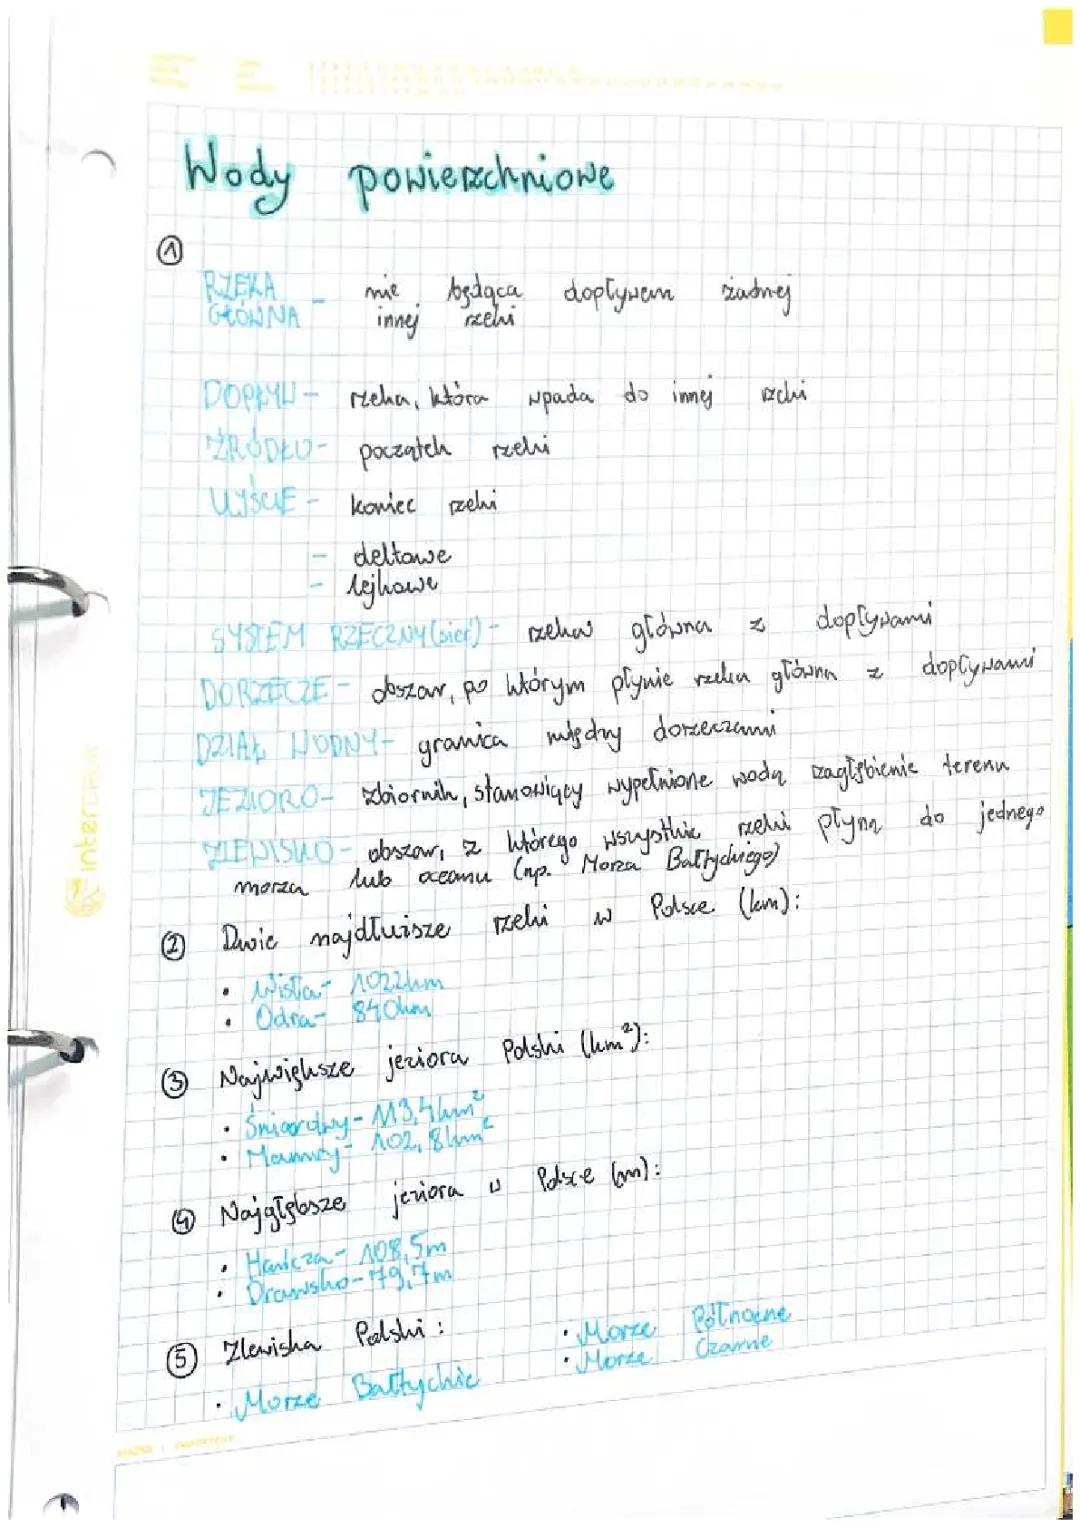 Wody powierzchniowe
①
RZEKA GŁÓWNA - nie będąca dopływem żadnej
innej rzeki
DOPŁYW - rzeka, która wpada do innej rzeki
ŹRÓDŁO - początek rzeki
UJŚCIE - koniec rzeki
- deltowe
- lejkowe
SYSTEM RZECZNY (sieć) - rzeka główna z dopływami
DORZECZE - obszar, po którym płynie rzeka główna z dopływami
DZIAŁ WODNY - granica między dorzeczami
JEZIORO - zbiornik, stanowiący wypełnione wodą zagłębienie terenu
ZLEWISKO - obszar, z którego wszystkie rzeki płyną do jednego
morza lub oceanu (np. Morza Bałtyckiego)
② Dwie najdłuższe rzeki w Polsce (km):
• Wisła - 1022km
• Odra - 840km
③ Największe jeziora Polski (km²):
• Śniardwy - 113,4km²
• Mamry - 102,8km²
④ Najgłębsze jeziora w Polsce (m):
• Hańcza - 108,5m
• Drawsko - 79,7m
⑤ Zlewiska Polski:
• Morze Bałtyckie
• Morze Północne
• Morze Czarne
interdruk